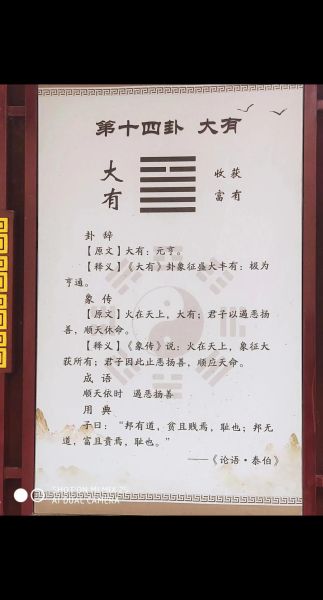 第十四卦 大有
大有
收获
富有
卦辞
【原文】大有：元亨。
【释义】《大有》卦象征盛大丰有：极为
亨通。
象传
【原文】火在天上，大有；君子以遏恶扬
善，顺天休命。
【释义】《象传》说：火在天上，象征大
获所有；君子因此止恶扬善，顺应天命。
成语
顺天依时 遏恶扬善
用典
子曰：“邦有道，贫且贱焉，耻也；邦无
道，富且贵焉，耻也。”
——《论语·泰伯》
SHOT ON MI MIX 2S
AI DUAL CAMERA